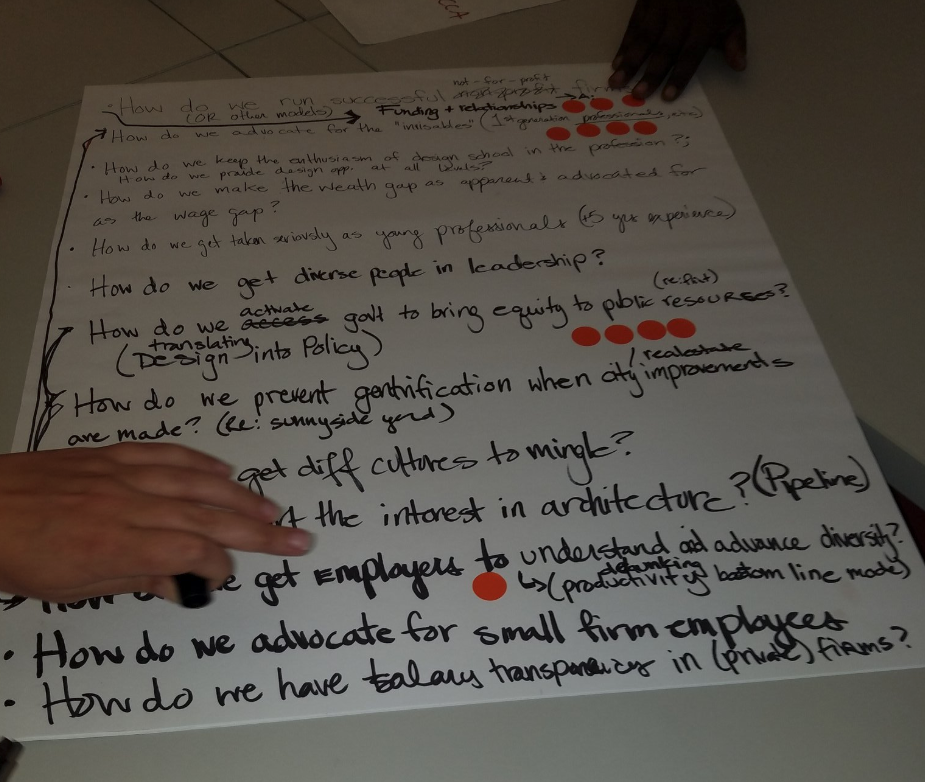 How do we run successful not-for-profit firms
(OR other models) → Funding + relationships
How do we advocate for the "invisables" (1st generation professionals, etc)
• How do we keep the enthusiasm of design school in the profession?
How do we provide design opp. at all levels?
• How do we make the weath gap as apparent & advocated for
as the wage gap?
• How do we get taken seriously as young professionals (+5 yrs experience)
How do we get diverse people in leadership?
How do we activate access gov't to bring equity to public resources?
(translating Design into Policy)
How do we prevent gentrification when city / realestate improvements
are made? (Re: sunnyside yard)
get diff cultures to mingle?
the interest in architecture? (Pipeline)
we get Employers to understand and advance diversity?
↳ (debunking productivity bottom line model)
• How do we advocate for small firm employees
• How do we have salary transparency in (private) firms?